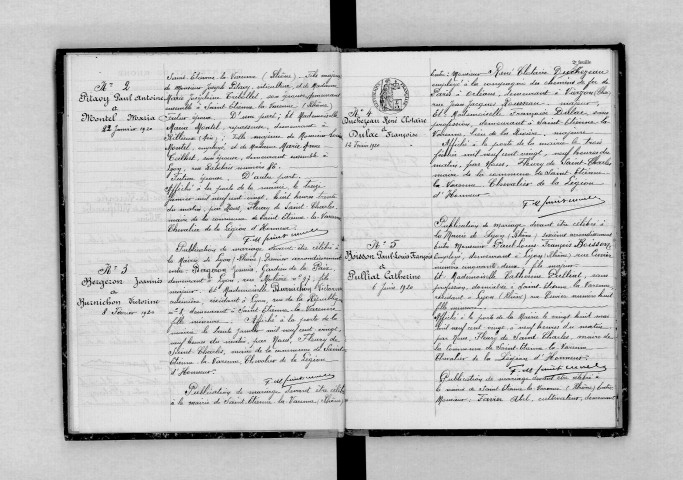 N° 2
Pilacy Paul Antoine
a
Montel Maria
22 Janvier 1920
Saint Etienne la Varenne (Rhône) - Fils majeur
de Monsieur Joseph Pilacy, viticulteur, et de Madame
Marie Joséphine
ensemble à Saint Etienne la Varenne (Rhône)
futur époux - D'une part; et Mademoiselle
Maria Montel, repasseuse, demeurant à
fille majeure de Monsieur
Montel, employé et de Madame Marie
son épouse, demeurant ensemble à
Lyon, rue
future épouse - D'autre part.
Affiché à la porte de la mairie, le
janvier mil neuf cent vingt,
du matin, par Nous, Fleury de Saint Charles,
maire de la commune de Saint Etienne la Varenne
Chevalier de la Légion d'Honneur.
N° 3
Bergeron Joannès
a
Burnichon Victorine
8 Février 1920
Publication de mariage devant être célébré à
la Mairie de Lyon (Rhône)
entre Bergeron Joannès, Gardien de la Paix,
demeurant à Lyon, rue Molière n° 97, fils
majeur. Et Mademoiselle Burnichon Victorine
résidant à Lyon, rue de la République
demeurant à Saint Etienne la Varenne
fille mineure - Affiché à la porte de la
mairie le huit février mil neuf cent vingt
heures du matin, par Nous, Fleury de
Saint Charles, maire de la commune de Saint
Etienne la Varenne, Chevalier de la Légion
d'Honneur.
Publication de mariage devant être célébré
à la mairie de Saint Etienne la Varenne (Rhône)
2e feuille
N° 4
Duchezeau René Clotaire
a
Dulac Françoise
14 Février 1920
Entre: Monsieur René Clotaire Duchezeau
employé à la compagnie des chemins de fer de
Paris à Orléans, demeurant à Vierzon (Cher)
rue Jean Jacques Rousseau, majeur
Et Mademoiselle Françoise Dulac sans
profession, demeurant à Saint Etienne la
Varenne, lieu de la Rivière, majeure
Affiché à la porte de la mairie le
février mil neuf cent vingt, neuf heures du
matin, par Nous, Fleury de Saint Charles
maire de la commune de Saint Etienne
la Varenne, Chevalier de la Légion
d'Honneur
N° 5
Boisson Paul Louis François
et
Pulliat Catherine
6 Juin 1920
Publication de mariage devant être célébré à
la Mairie de Lyon (Rhône) arrondissement
entre Monsieur Paul Louis François Boisson,
Employé, demeurant à Lyon (Rhône) rue Cuvier
numéro cinquante deux, fils majeur
Et Mademoiselle Catherine Pulliat, sans
profession, domiciliée à Saint Etienne la Varenne,
résidant à Lyon (Rhône) rue Cuvier numéro
fille mineure
Affiché à la porte de la Mairie le vingt huit mai
mil neuf cent vingt, à neuf heures du matin
par Nous, Fleury de Saint Charles, maire de
la Commune de Saint Etienne la Varenne
Chevalier de la Légion d'Honneur.
Publication de mariage devant être célébré à
la mairie de Saint Etienne la Varenne (Rhône) Entre
Monsieur Favier Abel, cultivateur, demeurant